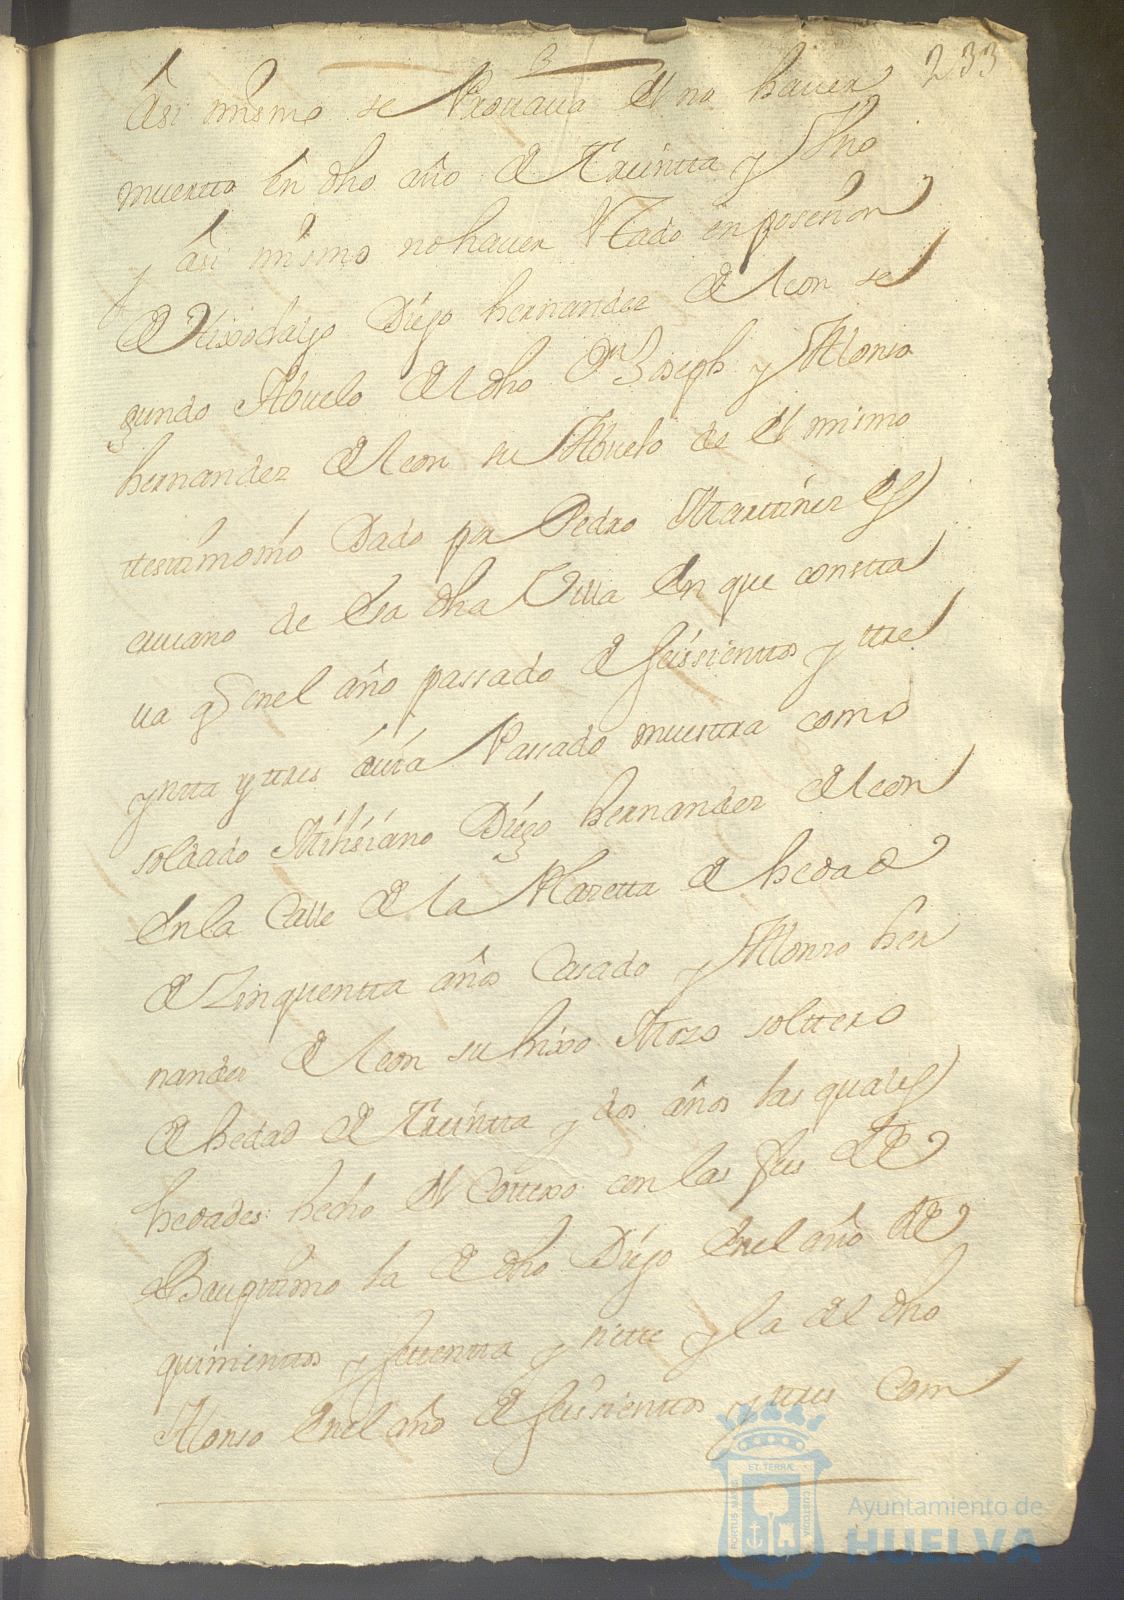 233
Asi mismo se Prouaua el no hauer
muertto En dho año de Treintta y Vno
y asi mismo no hauer Estado en poseçion
de Hixodalgo Diego hernandez de leon se
gundo Abuelo del dho Dn Joseph y Alonso
hernandez de leon su Abuelo de el mismo
testtimonio Dado por Pedro Marttinez Es
criuano de Esa dha Villa En que constta
ua q enel año passado de seissienttos y ttre
yntta y ttres auia Passado muesttra como
soldado Milisiano Diego hernandez de leon
En la Calle de la Plazetta de hedad
de Zinquentta años Casado y Alonso her
nandez de leon su hixo Mozo solttero
de hedad de Treintta y dos años las quales
hedades hecho el Cottexo con las fees de
Bauptismo la de dho Diego Enel año de
quinienttos y settentta y siette y la del dho
Alonso Enel año de seissienttos y ttres Com
PORTUS MARIS ET TERRAE CUSTODIA
Ayuntamiento de
HUELVA